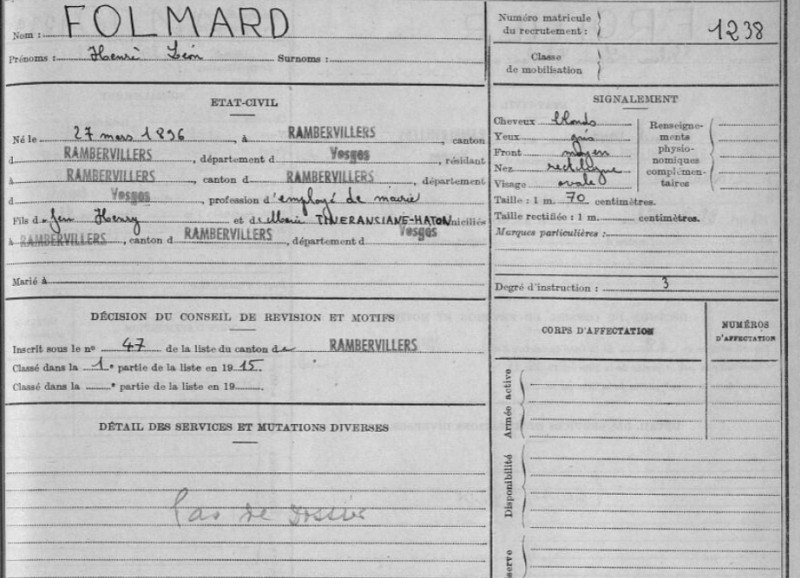 Nom : FOLMARD
Prénoms : Henri Léon Surnoms :
Numéro matricule du recrutement : 1238
Classe de mobilisation
ETAT-CIVIL
Né le 27 mars 1896, à RAMBERVILLERS, canton
d RAMBERVILLERS, département d Vosges, résidant
à RAMBERVILLERS, canton d RAMBERVILLERS, département
d Vosges, profession d'employé de mairie
Fils d Henry et de Marie domiciliés
à RAMBERVILLERS, canton d RAMBERVILLERS, département d Vosges
Marié à
SIGNALEMENT
Cheveux blonds
Yeux gris
Front moyen
Nez rectiligne
Visage ovale
Renseigne-
ments
physio-
nomiques
complémen-
taires
Taille : 1 m. 70 centimètres.
Taille rectifiée : 1 m. centimètres.
Marques particulières :
Degré d'instruction : 3
DÉCISION DU CONSEIL DE REVISION ET MOTIFS
Inscrit sous le nº 47 de la liste du canton de RAMBERVILLERS
Classé dans la 1e partie de la liste en 1915.
Classé dans la e partie de la liste en 19
DÉTAIL DES SERVICES ET MUTATIONS DIVERSES
Pas de Dossier
CORPS D'AFFECTATION
NUMÉROS
D'AFFECTATION
Armée active
Disponibilité